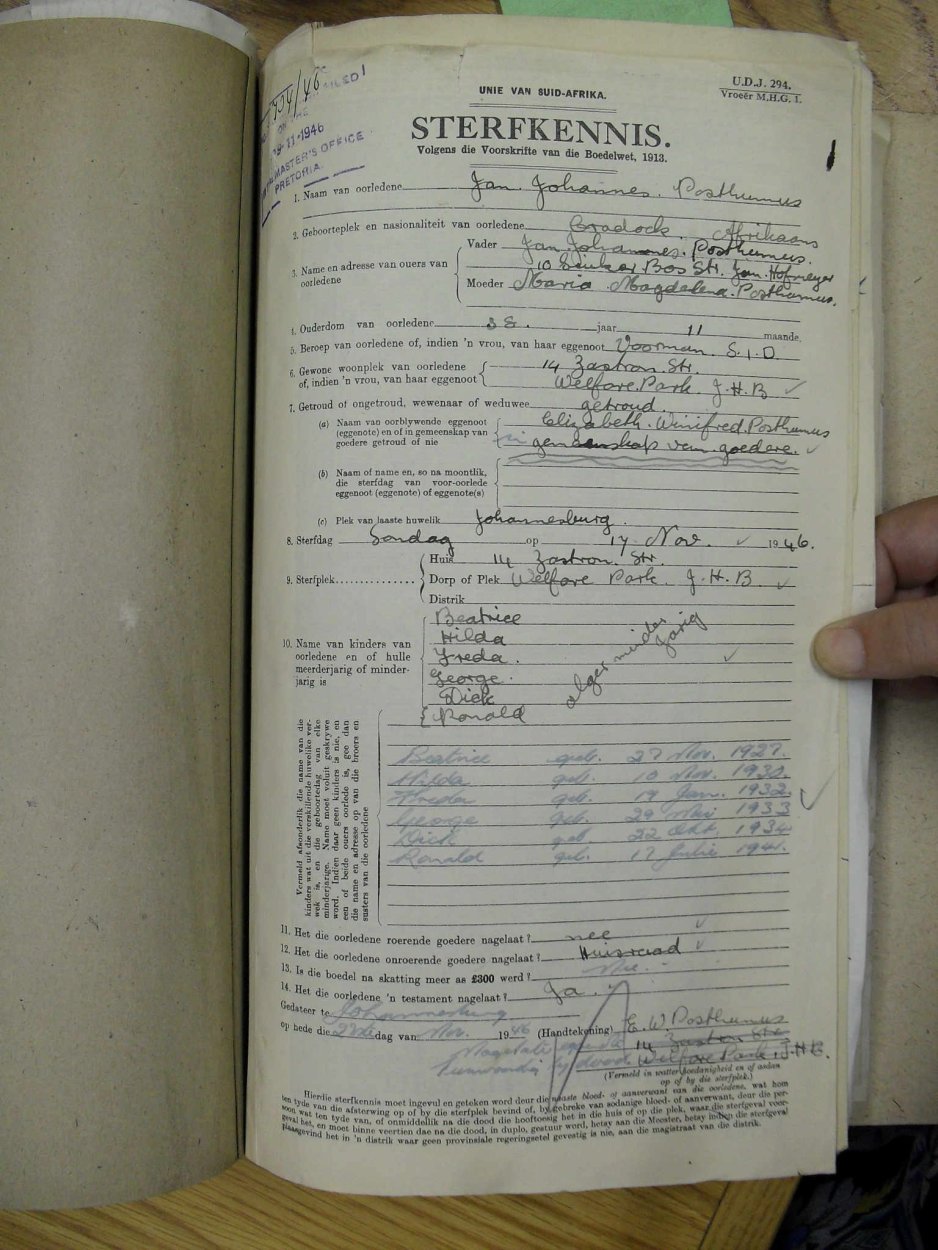 U.D.J. 294.
Vroeër M.H.G. 1.
UNIE VAN SUID-AFRIKA.
STERFKENNIS.
Volgens die Voorskrifte van die Boedelwet, 1913.
-11-1946
MASTER'S OFFICE
PRETORIA.
1. Naam van oorledene Jan Johannes Posthumus
2. Geboorteplek en nasionaliteit van oorledene Cradock Afrikaans
3. Name en adresse van ouers van oorledene
Vader Jan Johannes Posthumus.
10 Bos Str. Jan Hofmeyer
Moeder Maria Magdalena Posthumus.
4. Ouderdom van oorledene 38. jaar 11 maande.
5. Beroep van oorledene of, indien 'n vrou, van haar eggenoot Voorman S.I.D.
6. Gewone woonplek van oorledene 14 Zastron Str.
of, indien 'n vrou, van haar eggenoot Welfare Park J.H.B
7. Getroud of ongetroud, wewenaar of weduwee getroud.
(a) Naam van oorblywende eggenoot Elizabeth Winifred Posthumus
(eggenote) en of in gemeenskap van goedere getroud of nie in gemeenskap van goedere.
(b) Naam of name en, so na moontlik,
die sterfdag van voor-oorlede
eggenoot (eggenote) of eggenote(s)
(c) Plek van laaste huwelik Johannesburg.
8. Sterfdag Sondag op 17 Nov. 1946.
9. Sterfplek
Huis 14 Zastron Str.
Dorp of Plek Welfare Park J.H.B
Distrik
10. Name van kinders van
oorledene en of hulle
meerderjarig of minder-
jarig is
Beatrice
Hilda
Freda.
George.
Dick
Ronald
minder
jarig
Vermeld afsonderlik die name van die
kinders wat uit die verskillende huwelike ver-
wek is, en die geboortedag van elke
minderjarige. Name moet voluit geskrywe
word. Indien daar geen kinders is nie, en
een of beide ouers oorlede is, gee dan
die name en adresse op van die broers en
susters van die oorledene
Beatrice geb. 27 Nov. 1927.
Hilda geb. 10 Nov. 1930.
Freda geb. 19 Jan. 1932
George geb. 29 Mei 1933
Dick geb. 22 Okt. 1934
Ronald geb. 17 Julie 1941.
11. Het die oorledene roerende goedere nagelaat? nee
12. Het die oorledene onroerende goedere nagelaat? Huisraad
13. Is die boedel na skatting meer as £300 werd? Nee.
14. Het die oorledene 'n testament nagelaat? Ja.
Gedateer te Johannesburg
op hede die 22ste dag van Nov. 1946 (Handtekening) E. W. Posthumus
14 Zastron Str
Nagelate eggenote Welfare Park J.H.B.
teenwoordig by dood.
(Vermeld in watter hoedanigheid en of aedan
op of by die sterfplek.)
Hierdie sterfkennis moet ingevul en geteken word deur die naaste bloed- of aanverwant van die oorledene, wat hom
ten tyde van die afsterwing op of by die sterfplek bevind of, by gebreke van sodanige bloed- of aanverwant, deur die per-
soon wat ten tyde van, of onmiddellik na die dood die hooftoesig het in die huis of op die plek, waar die sterfgeval voor-
geval het, en moet binne veertien dae na die dood, in duplo, gestuur word, hetsy aan die Meester, hetsy indien die sterfgeval
plaasgevind het in 'n distrik waar geen provinsiale regeringsetel gevestig is nie, aan die magistraat van die distrik.